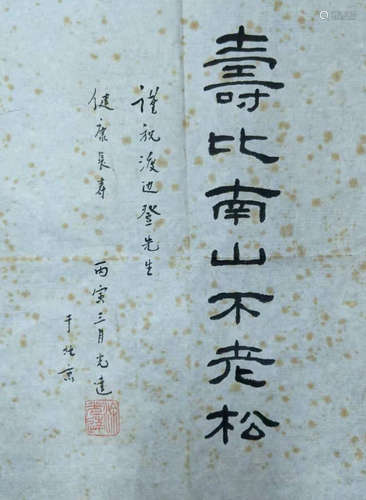 壽比南山不老松
谨祝渡边登先生
健康长寿
丙寅三月光遠
于北京